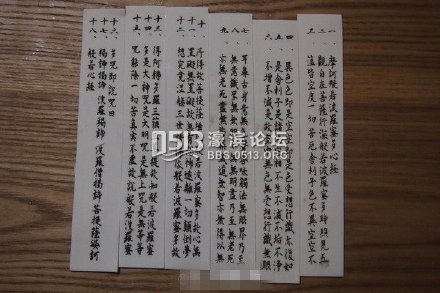 一 摩訶般若波羅蜜多心經
二 觀自在菩薩行深般若波羅蜜多時照見五
三 蘊皆空度一切苦厄舍利子色不異空空不
四 異色色即是空空即是色受想行識亦復如
五 是舍利子是諸法空相不生不滅不垢不淨
六 不增不減是故空中無色無受想行識無眼
七 耳鼻舌身意無味觸法無眼界乃至
八 無意識界無無明盡乃至無老死
九 亦無老死盡無苦無智亦無得以無
十 所得故菩提薩埵波羅蜜多故心無
十一 罣礙無罣礙故無遠離一切顛倒夢
十二 想究竟涅槃三世般若波羅蜜多故
十三 得阿耨多羅三藐故知般若波羅蜜
十四 多是大神咒是大明咒是無上咒是無等等
十五 咒能除一切苦真實不虛故說般若波羅蜜
十六 多咒即說咒曰
十七 揭諦揭諦 波羅揭諦 波羅僧揭諦 菩提薩婆訶
十八 般若心經
0513濠滨论坛
BBS.0513.ORG